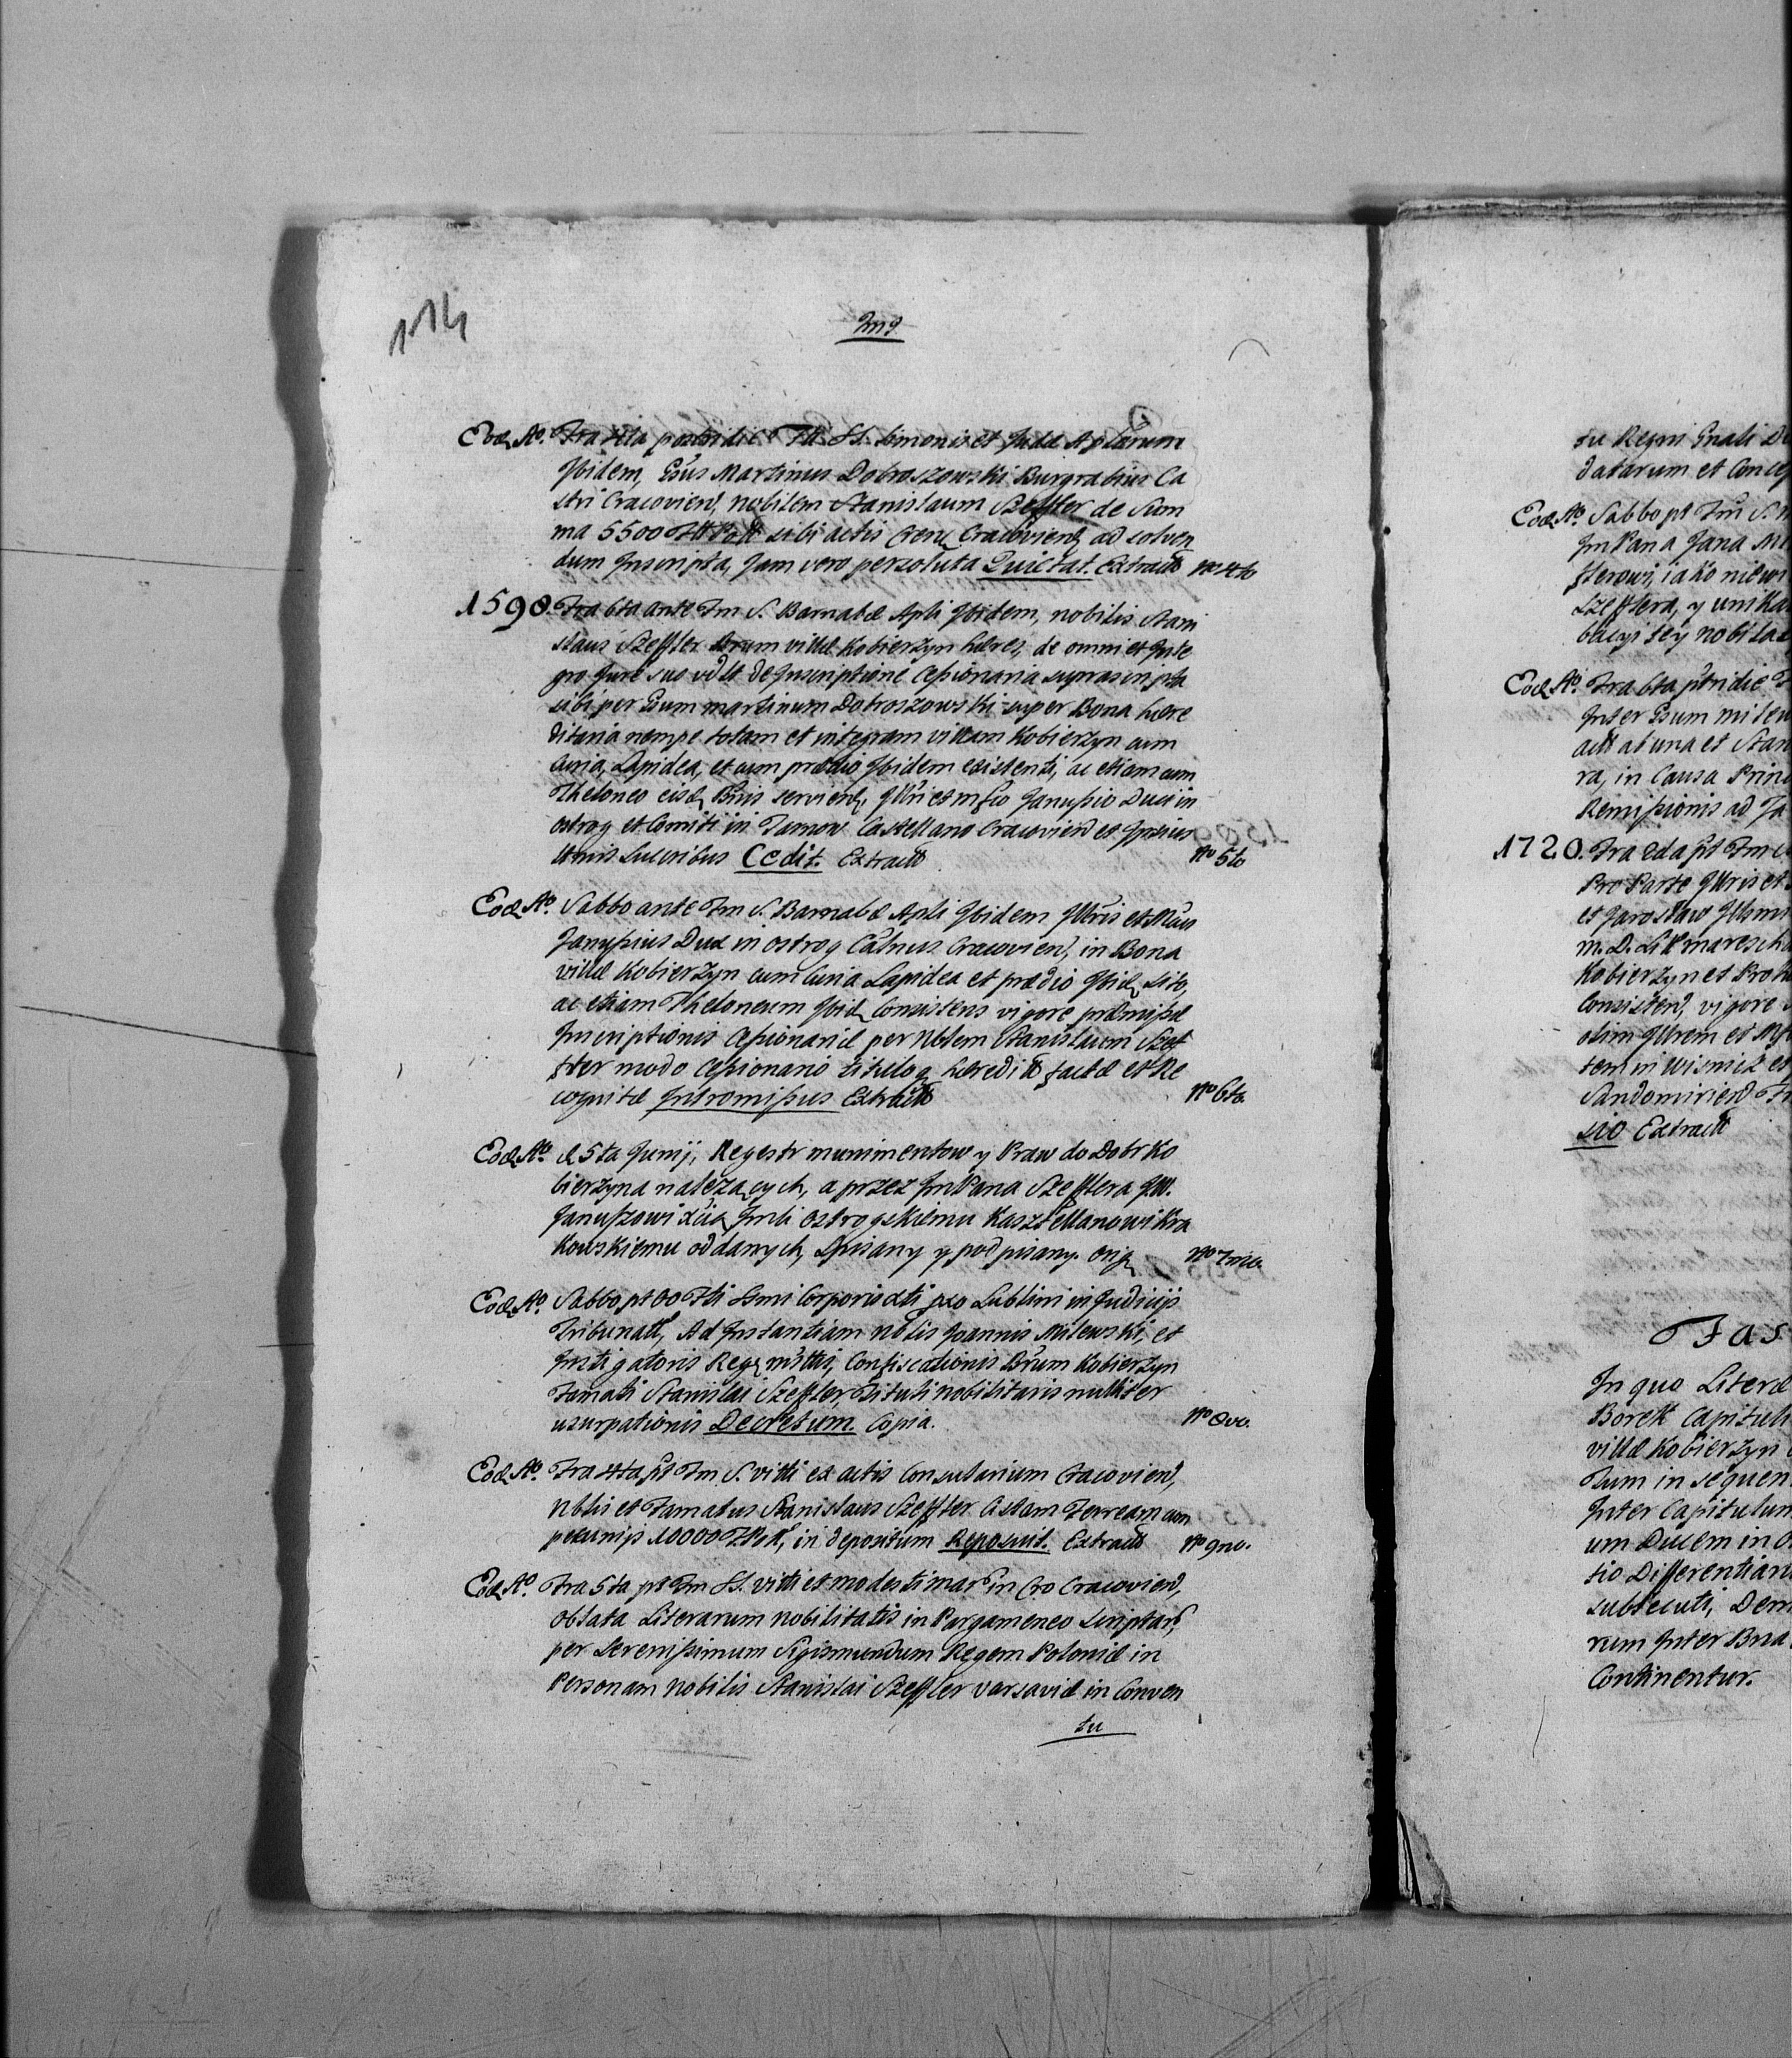 114
Eod. Ao. Fra 4ta postridie Fti SS. Simonis et Judæ Aplorum
Ibidem, Gsus Martinus Dobroszowski Burgrabius Ca
stri Cracovien, nobilem Stanislaum Szeffler de Sum
ma 5500 sibi actis Cracovien ad solven
dum Inscripta, Jam vero persoluta Quietat. Extract No 4to
1590. Fra 6ta ante Fm S. Barnabæ Apli Ibidem, nobilis Stani
slaus Szeffler Brum villæ Kobierzyn hæres, de omni et Inte
gro Jure suo vdlt de Inscriptione Cessionaria suprascripta
sibi per Gsum Martinum Dobroszowski super Bona hære
ditaria nempe totam et integram villam Kobierzyn cum
Curia Lapidea, et cum prædio Ibidem existenti, ac etiam cum
Theloneo eisd Bnis servien, Illri et mfco Janussio Duci in
ostrog et Comiti in Tarnow Castellano Cracovien et Ipsius
ltmis Sucribus Cedit. Extract No 5to
Eod. Ao. Sabbo ante Fm S. Barnabæ Apli Ibidem Illris et Mcus
Janussius Dux in ostrog Catnus Cracovien, in Bona
villæ Kobierzyn cum Curia Lapidea et prædio Ibid sito,
ac etiam Theloneum Ibid Consistens vigore præmissæ
Inscriptionis Cessionariæ per Nblem Stanislaum Szef
fler modo Cessionario titulog heredit factæ et Re
cognitæ Intromissus Extract No 6to.
Eod. Ao. d 5ta Junij, Regestr munimentow y Praw do Dobr Ko
bierzyna należących, a przez ImPana Szefflera JW.
Janussowi Xciu Imci Ostrogskiemu Kasztellanowi Kra
kowskiemu oddanych, Spisany y podpisany. Orig No 7mo.
Eod. Ao. Sabbo pt Fti SSmi Corporis Xti pro Lublini in Judicijs
Tribunal, Ad Instantiam nblis Joannis Milewski, et
Instigatoris Reg mttis, Confiscationis Brum Kobierzyn
Famati Stanislai Szeffler, Tituli nobilitaris nulliter
usurpationis Decretum. Copia. No 8vo.
Eod. Ao. Fra 4ta pt Fm S. Viti ex actis Consularium Cracovien,
Nblis et Famatus Stanislaus Szeffler Cistam Ferream cum
pecunijs 10000, in depositum Reposuit. Extract No 9no.
Eod. Ao. Fra 5ta pt Fm SS. Viti et modesti mar in Cro Cracovien,
oblata Literarum nobilitatis in Pargameneo Scriptar,
per Serenissimum Sigismundum Regem Poloniæ in
Personam nobilis Stanislai Szeffler Varsaviæ in Conven
tu
tu Regni Gnali
datarum et
Eod. Ao. Sabbo pt Fm S.
ImPana Jana
fflerowi, iako niewi
Szefflera, y
tey nobilac
Eod. Ao. Fra 6ta ptridie
Inter Gsum
act ab una et Stan
ra, in Causa Prin
Remissionis ad Ja
1720. Fra 2da pt Fm
Pro Parte Illris et
et Jaroslaw Illsmi
M. D. Lit maresch
Kobierzyn et
Consisten, vigore
olim Illrem et
tem in Wisnicz et
Sandomirien
sio Extract
Fas
In quo Literæ
Borek Capituli
villæ Kobierzyn
Tum in sequen
Inter Capitulum
um Ducem in O
tio Differentiarum
subsecuti, Dem
rum Inter Bna
Continentur.